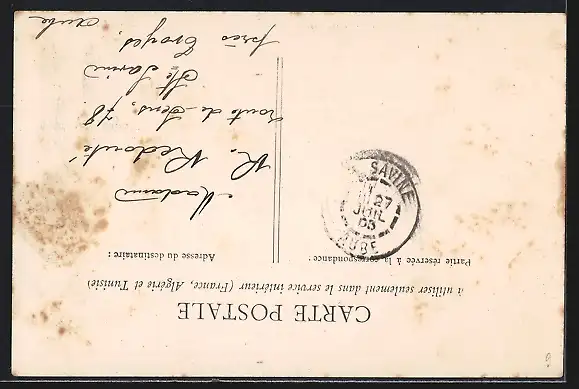 CARTE POSTALE
à utiliser seulement dans le service intérieur (France, Algérie et Tunisie)
Partie réservée à la correspondance :
Adresse du destinataire :
Madame
R. Redouté
route de Sens, 78
Ste Savine
près Troyes,
Aube
SAVINE
27
JUIL
AUBE